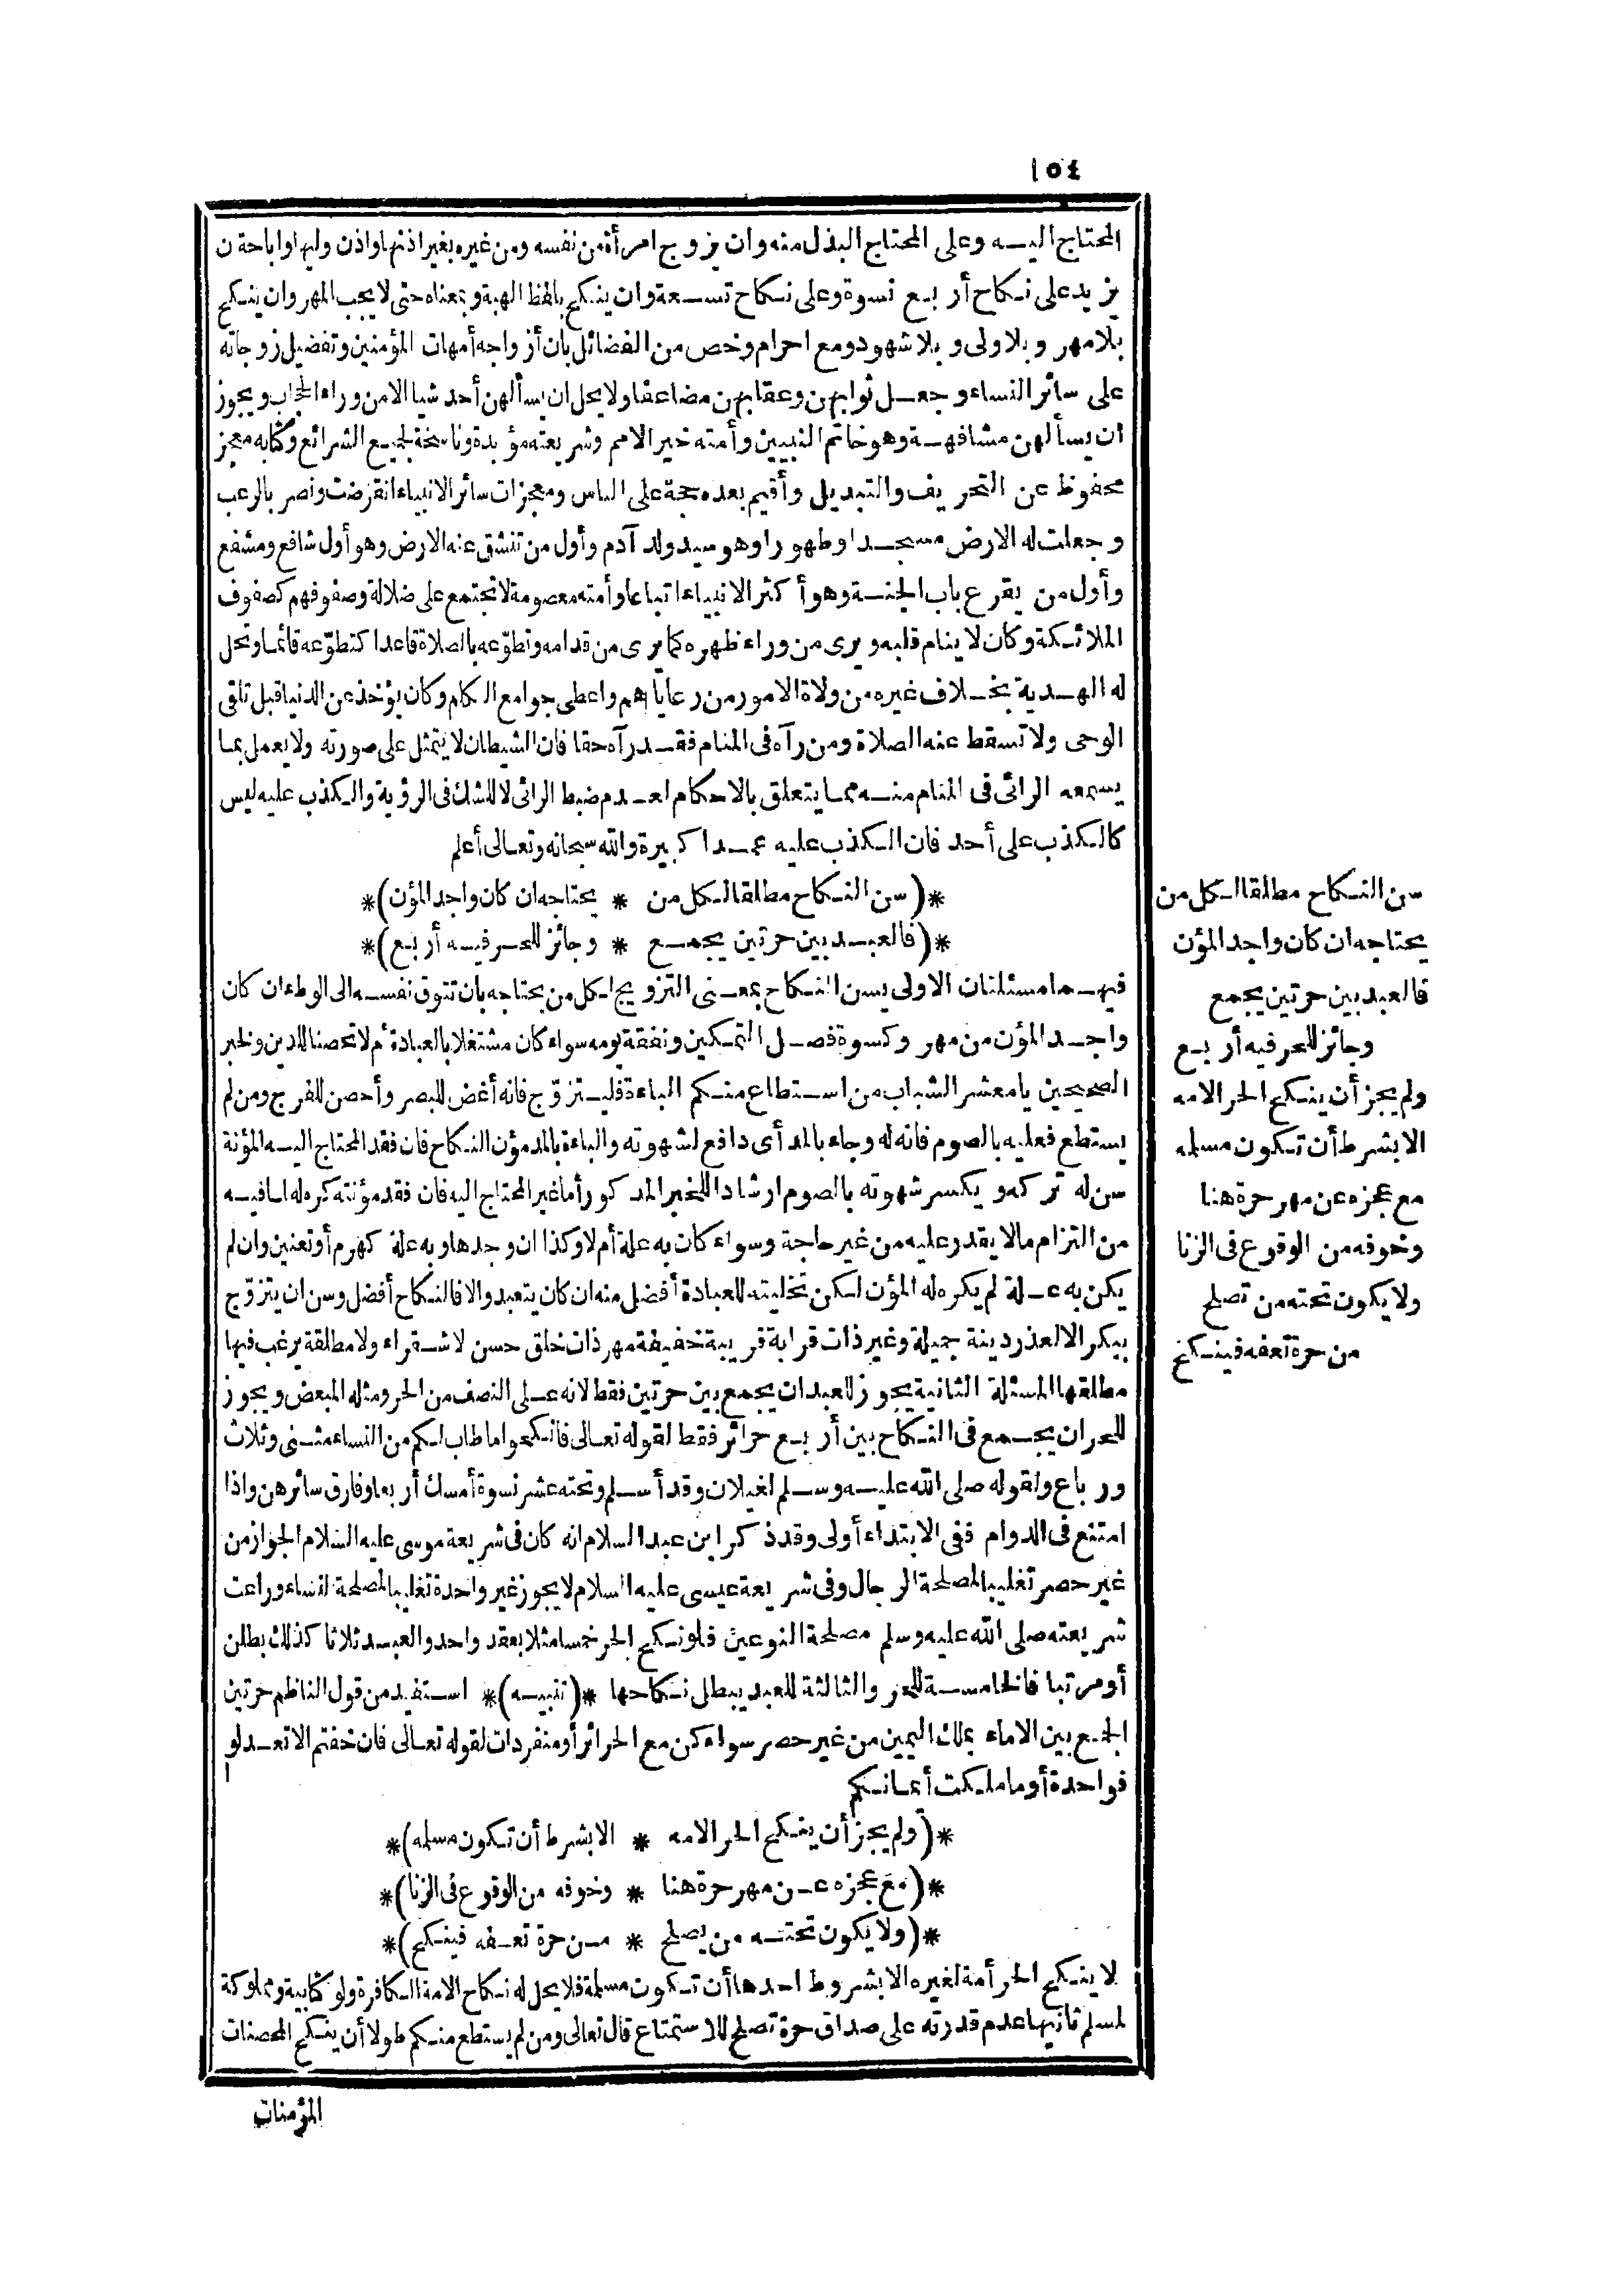 ١٥٤
المحتاج اليه وعلى المحتاج البذل منه وان يزوج امرأة من نفسه ومن غيره بغير اذنها واذن وليها واباحة ن
يزيد على نكاح أربع نسوة وعلى نكاح تسعة وان ينكح بلفظ الهبة وبمعناه حتى لا يجب المهر وان ينكح
بلا مهر وبلا ولى وبلا شهود ومع احرام وخص من الفضائل بان أزواجه أمهات المؤمنين وتفضيل زوجاته
على سائر النساء وجعل ثوابهن وعقابهن مضاعفا ولا يحل ان يسألهن أحد شيا الا من وراء الحجاب ويجوز
ان يسألهن مشافهة وهو خاتم النبيين وأمته خير الامم وشريعته مؤبدة وناسخة لجميع الشرائع وكتابه معجز
محفوظ عن التحريف والتبديل وأقيم بعده حجة على الناس ومعجزات سائر الانبياء انقرضت ونصر بالرعب
وجعلت له الارض مسجدا وطهورا وهو سيد ولد آدم وأول من تنشق عنه الارض وهو أول شافع ومشفع
وأول من يقرع باب الجنة وهو أكثر الانبياء اتباعا وأمته معصومة لا تجتمع على ضلالة وصفوفهم كصفوف
الملائكة وكان لا ينام قلبه ويرى من وراء ظهره كما يرى من قدامه وتطوّعه بالصلاة قاعدا كتطوّعه قائما وتحل
له الهدية بخلاف غيره من ولاة الامور من رعاياهم واعطى جوامع الكلم وكان يؤخذ عن الدنيا قبل تلقى
الوحى ولا تسقط عنه الصلاة ومن رآه فى المنام فقد رآه حقا فان الشيطان لا يتمثل على صورته ولا يعمل بما
يسمعه الرائى فى المنام منه مما يتعلق بالاحكام لعدم ضبط الرائى لا للشك فى الرؤية والكذب عليه ليس
كالكذب على أحد فان الكذب عليه عمدا كبيرة والله سبحانه وتعالى أعلم
*(سن النكاح مطلقا لكل من * يحتاجه ان كان واجد المؤن)*
*(فالعبد بين حرتين يجمع * وجائز للحر فيه أربع)*
فيهما مسئلتان الاولى يسن النكاح بمعنى التزويج لكل من يحتاجه بان تتوق نفسه الى الوطء ان كان
واجد المؤن من مهر وكسوة فصل التمكين ونفقة يومه سواء كان مشتغلا بالعبادة أم لا تحصنا للدين ولخبر
الصحيحين يا معشر الشباب من استطاع منكم الباءة فليتزوّج فانه أغض للبصر وأحصن للفرج ومن لم
يستطع فعليه بالصوم فانه له وجاء بالمد أى دافع لشهوته والباءة بالمد مؤن النكاح فان فقد المحتاج اليه المؤنة
سن له تركه ويكسر شهوته بالصوم ارشادا للخبر المذكور أما غير المحتاج اليه فان فقد مؤنته كره له لما فيه
من التزام ما لا يقدر عليه من غير حاجة وسواء كان به علة أم لا وكذا ان وجدها وبه علة كهرم أو تعنين وان لم
يكن به علة لم يكره له المؤن لكن تخليته للعبادة أفضل منه ان كان يتعبد والا فالنكاح أفضل وسن ان يتزوّج
ببكر الا لعذر دينة جميلة وغير ذات قرابة قريبة خفيفة مهر ذات خلق حسن لا شقراء ولا مطلقة يرغب فيها
مطلقها المسئلة الثانية يجوز للعبد ان يجمع بين حرتين فقط لانه على النصف من الحر ومثله المبعض ويجوز
للحر ان يجمع فى النكاح بين أربع حرائر فقط لقوله تعالى فانكحوا ما طاب لكم من النساء مثنى وثلاث
ورباع ولقوله صلى الله عليه وسلم لغيلان وقد أسلم وتحته عشر نسوة أمسك أربعا وفارق سائرهن واذا
امتنع فى الدوام ففى الابتداء أولى وقد ذكر ابن عبد السلام انه كان فى شريعة موسى عليه السلام الجواز من
غير حصر تغليبا لمصلحة الرجال وفى شريعة عيسى عليه السلام لا يجوز غير واحدة تغليبا لمصلحة النساء وراعت
شريعته صلى الله عليه وسلم مصلحة النوعين فلو نكح الحر خمسا مثلا بعقد واحد والعبد ثلاثا كذلك بطلن
أو مرتبا فالخامسة للحر والثالثة للعبد يبطل نكاحها *(تنبيه)* استفيد من قول الناظم حرتين
الجمع بين الاماء بملك اليمين من غير حصر سواء كن مع الحرائر أو منفردات لقوله تعالى فان خفتم الا تعدلوا
فواحدة أو ما ملكت أيمانكم
*(ولم يجز أن ينكح الحر الامه * الا بشرط أن تكون مسلمه)*
*(مع عجزه عن مهر حرة هنا * وخوفه من الوقوع فى الزنا)*
*(ولا يكون تحته من يصلح * من حرة تعفه فينكح)*
لا ينكح الحر أمة لغيره الا بشروط احدها أن تكون مسلمة فلا يحل له نكاح الامة الكافرة ولو كتابية ومملوكة
لمسلم ثانيها عدم قدرته على صداق حرة تصلح للاستمتاع قال تعالى ومن لم يستطع منكم طولا أن ينكح المحصنات
المؤمنات
سن النكاح مطلقا لكل من
يحتاجه ان كان واجد المؤن
فالعبد بين حرتين يجمع
وجائز للحر فيه أربع
ولم يجز أن ينكح الحر الامه
الا بشرط أن تكون مسلمه
مع عجزه عن مهر حرة هنا
وخوفه من الوقوع فى الزنا
ولا يكون تحته من تصلح
من حرة تعفه فينكح